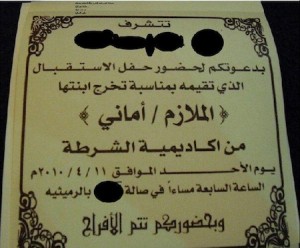 تتشرف
بدعوتكم لحضور حفل الاستقبال
الذي تقيمه بمناسبة تخرج ابنتها
﴿ الملازم / أماني ﴾
من اكاديمية الشرطة
يوم الأحد الموافق ٢٠١٠/٤/١١م
الساعة السابعة مساءاً في صالة بالرميثيه
وبحضوركم تتم الأفراح